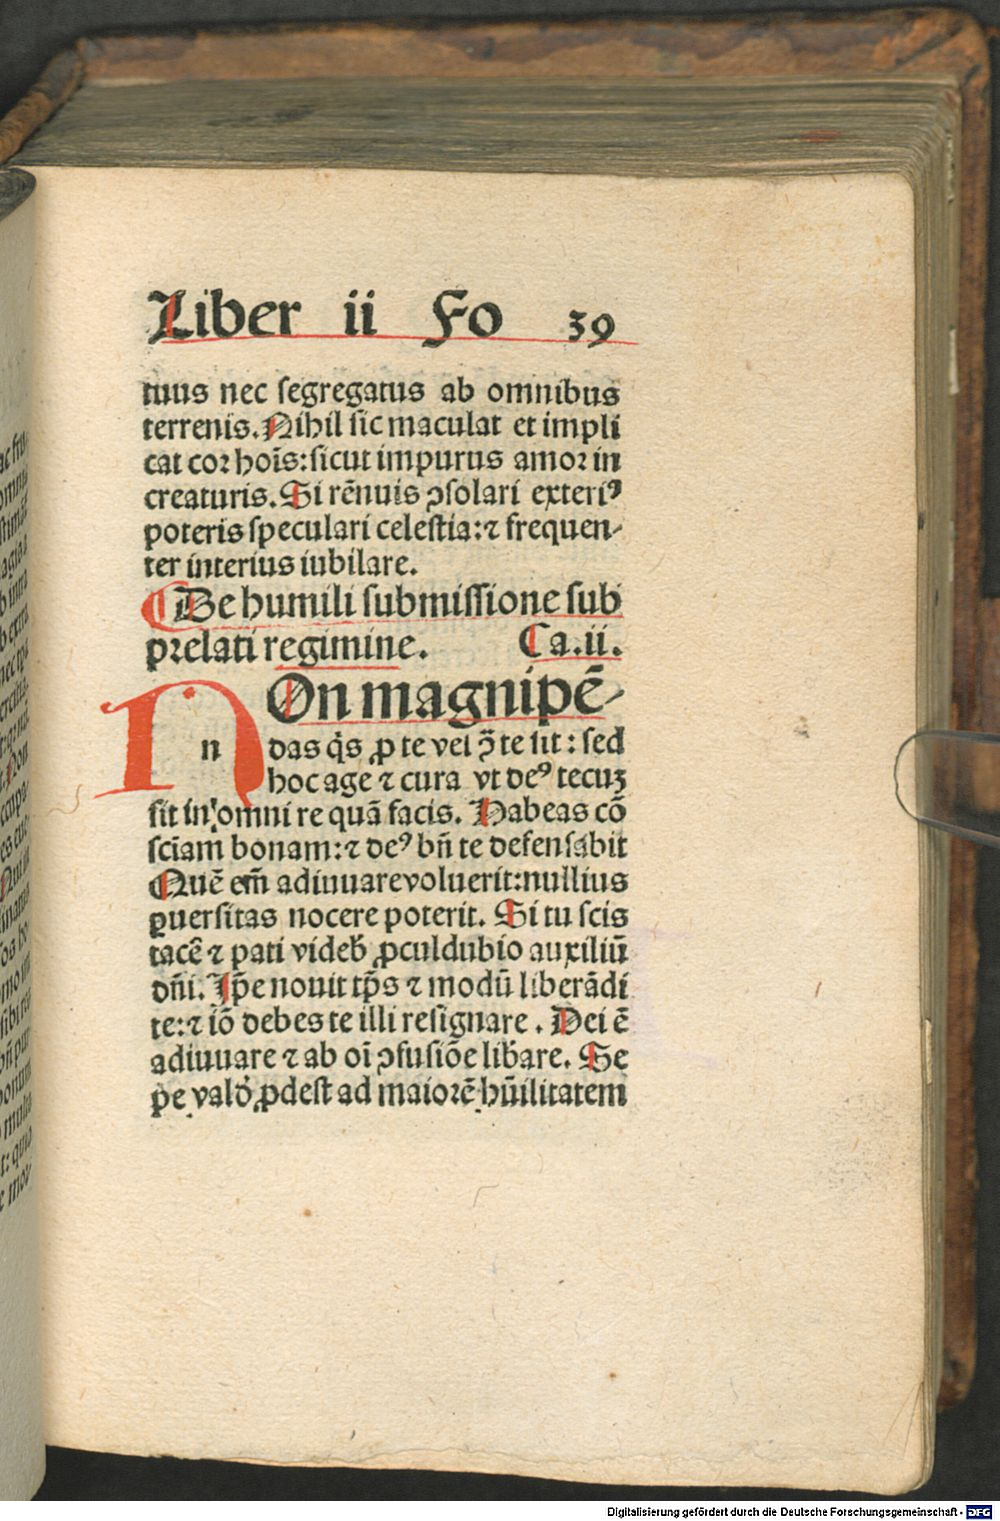 Liber ii Fo 39
tuus nec ſegregatus ab omnibus
terrenis. Nihil ſic maculat et impli
cat coꝛ hoīs: ſicut impurus amoꝛ in
creaturis. Si rēnuis ↄſolari exteriꝰ
poteris ſpeculari celeſtia: ⁊ frequen-
ter interius iubilare.
¶ De humili ſubmiſſione ſub
pꝛelati regimine. Ca. ii.
NOn magnipē-
n
das q̄s ꝓ te vel ꝯ̄ te ſit: ſed
hoc age ⁊ cura vt deꝰ tecuꝫ
ſit in omni re quā facis. Habeas cō
ſciam bonam: ⁊ deꝰ bn̄ te defenſabit
Quē em̄ adiuuare voluerit: nullius
ꝑuerſitas nocere poterit. Si tu ſcis
tacē ⁊ pati videb̓ ꝓculdubio auxiliū
dn̄i. Ip̄e nouit tp̄s ⁊ modū liberādi
te: ⁊ iō debes te illi reſignare. Dei ē
adiuuare ⁊ ab oī ↄfuſiōe lib̓are. Se
pe valð ꝓdeſt ad maioꝛē hūilitatem
Digitalisierung gefördert durch die Deutsche Forschungsgemeinschaft - DFG